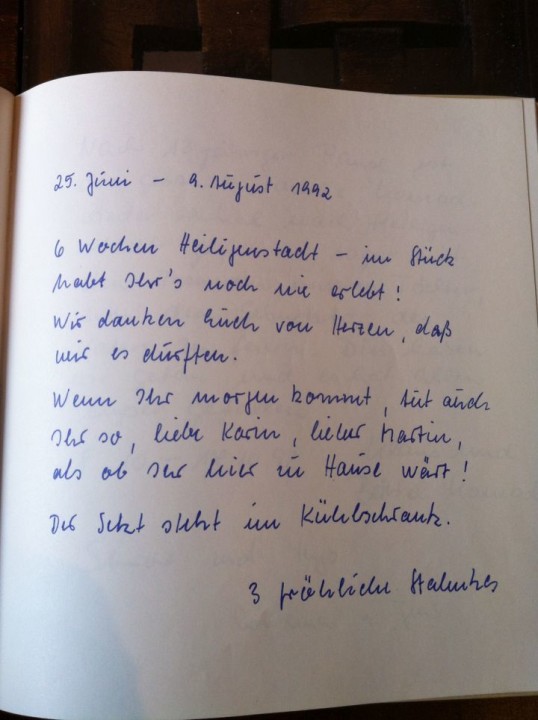 25. Juni - 9. August 1992
6 Wochen Heiligenstadt - im Stück
habt Ihr's noch nie erlebt!
Wir danken Euch von Herzen, daß
wir es dürften.
Wenn Ihr morgen kommt, tut auch
Ihr so, liebe Karin, lieber Martin,
als ob Ihr hier zu Hause wärt!
Der Sekt steht im Kühlschrank.
3 fröhliche